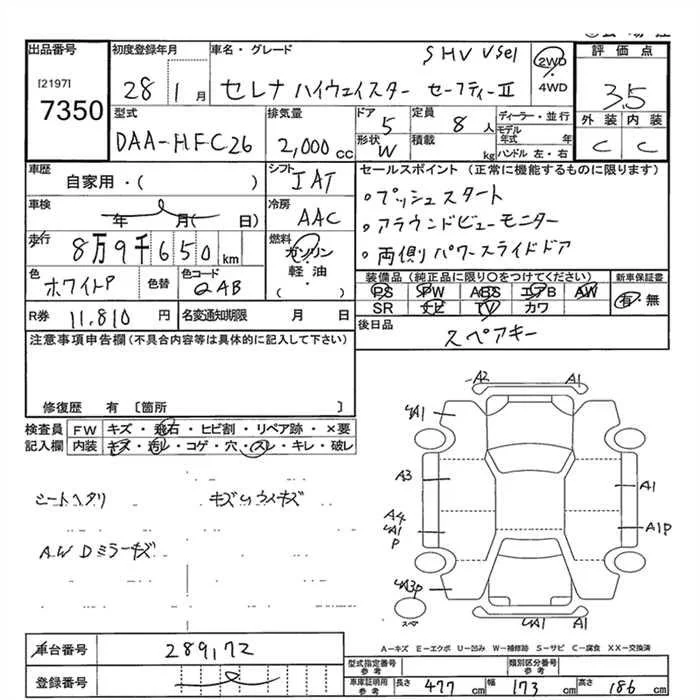 出品番号
[2197]
7350
初度登録年月
28 1月
車名・グレード
SHV Vsel
セレナ ハイウェイスター セーフティーⅡ
2WD
・
4WD
評価点
3.5
外装 内装
C C
型式
DAA-HFC26
排気量
2,000cc
ドア
5
形状
W
定員
8人
積載
kg
ディーラー・並行
モデル年式 年
ハンドル 左・右
車歴
自家用・( )
シフト
IAT
セールスポイント(正常に機能するものに限ります)
。プッシュスタート
。アラウンドビューモニター
。両側パワースライドドア
車検
年 月( 日)
冷房
AAC
走行
8万9千650km
燃料
ガソリン
軽・油
( )
色
ホワイトP
色替
色コード
QAB
装備品(純正品に限り○をつけてください)
PS PW ABS エアB AW
SR ナビ TV カワ
新車保証書
有・無
R券
11,810円
名変通知期限 月 日
後日品
スペアキー
注意事項申告欄(不具合内容等は具体的に記入して下さい)
修復歴 有〔箇所 〕
検査員
記入欄
FW キズ・飛石・ヒビ割・リペア跡・×要
内装 キズ・汚レ・コゲ・穴・スレ・キレ・破レ
シートヘタリ
キズ小ウスキズ
A.W Dミラーキズ
A2 A1
A1
A3
A1
A4
A1
P
A1P
A3P
スペア
A1 A1
A=キズ E=エクボ U=凹み W=補修跡 S=サビ C=腐食 XX=交換済
車台番号
289172
登録番号
型式指定番号
参考
類別区分番号
参考
車庫証明用
参考
長さ 477cm 幅 173cm 高さ 186cm